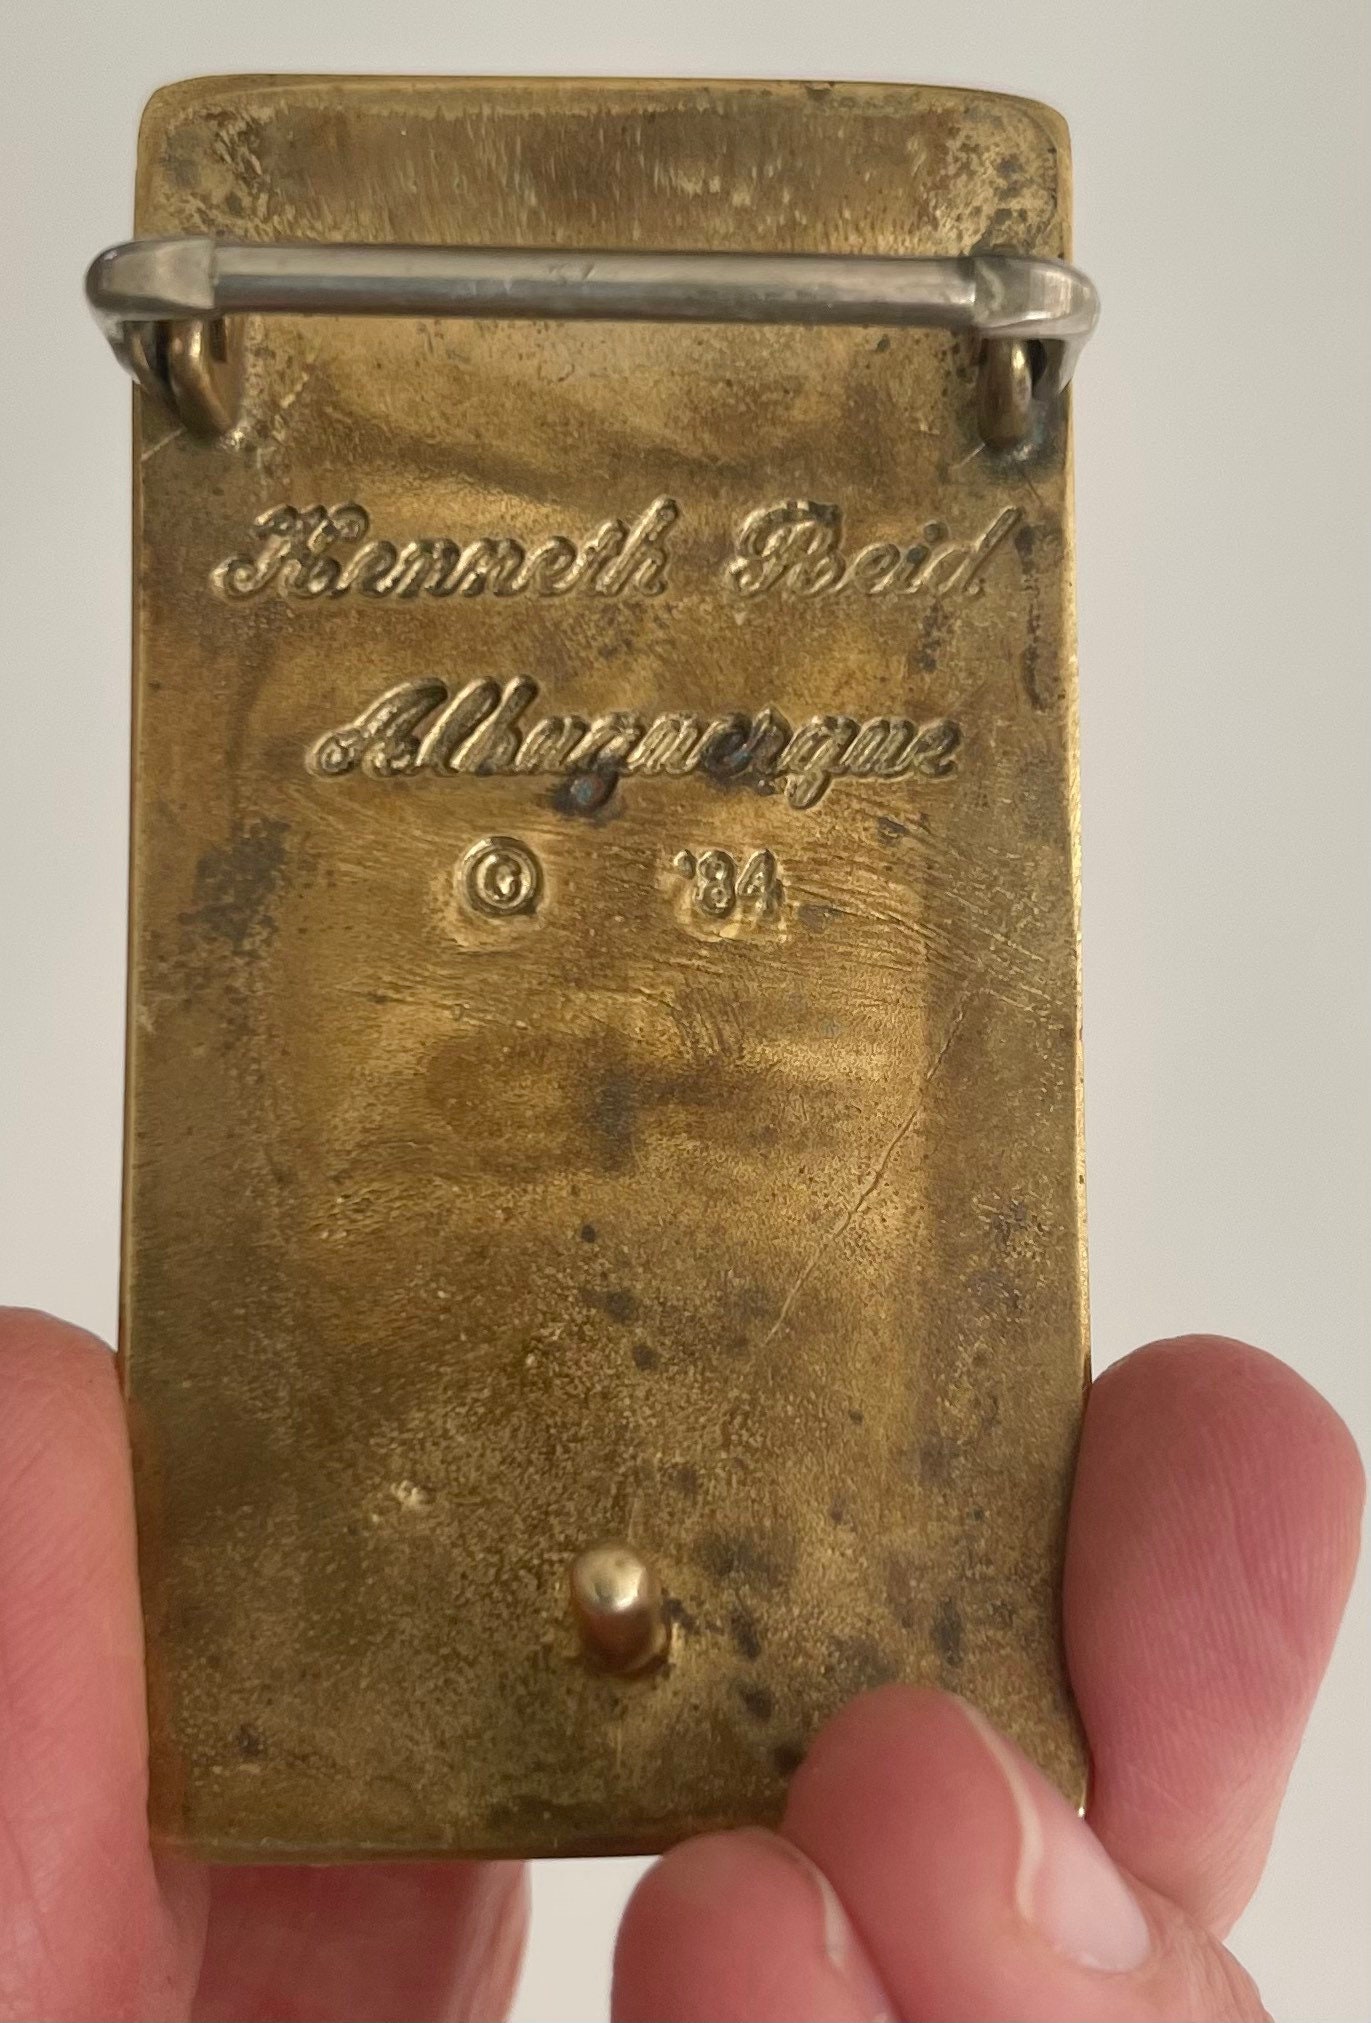 Kenneth Reid
Albuquerque
© '84